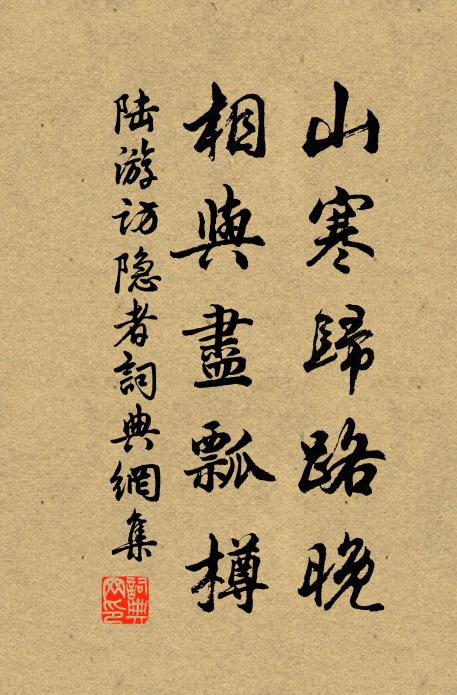 山寒歸路晚
相與盡瓢樽
陆游访隐者詞典網集
詞典网印